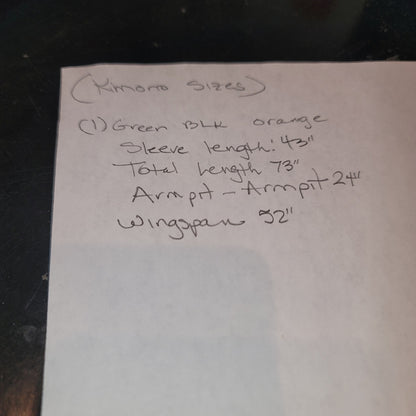 (Kimono Sizes)
(1) Green BLK orange
Sleeve length: 43"
Total Length 73"
Armpit - Armpit 24"
Wingspan 52"